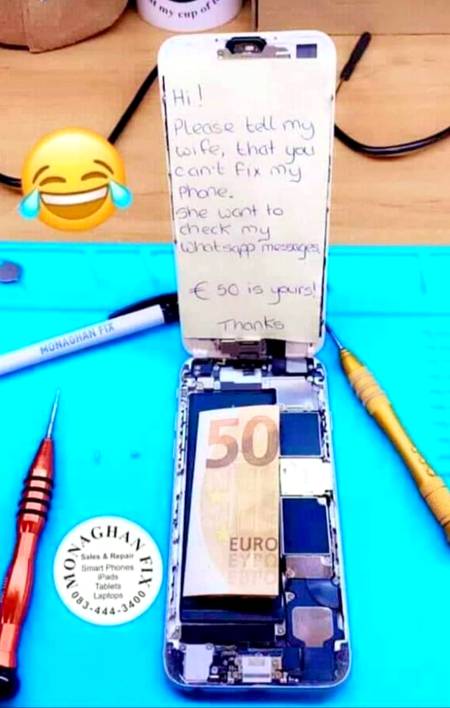 my cup of t
Hi!
Please tell my
wife, that you
can't fix my
phone.
She want to
check my
Whatsapp messages,
€ 50 is yours!
Thanks
MONAGHAN FIX
50
EURO
ΕΥΡΩ
ЕВРО
MONAGHAN FIX
Sales & Repair
Smart Phones
iPads
Tablets
Laptops
083-444-3400